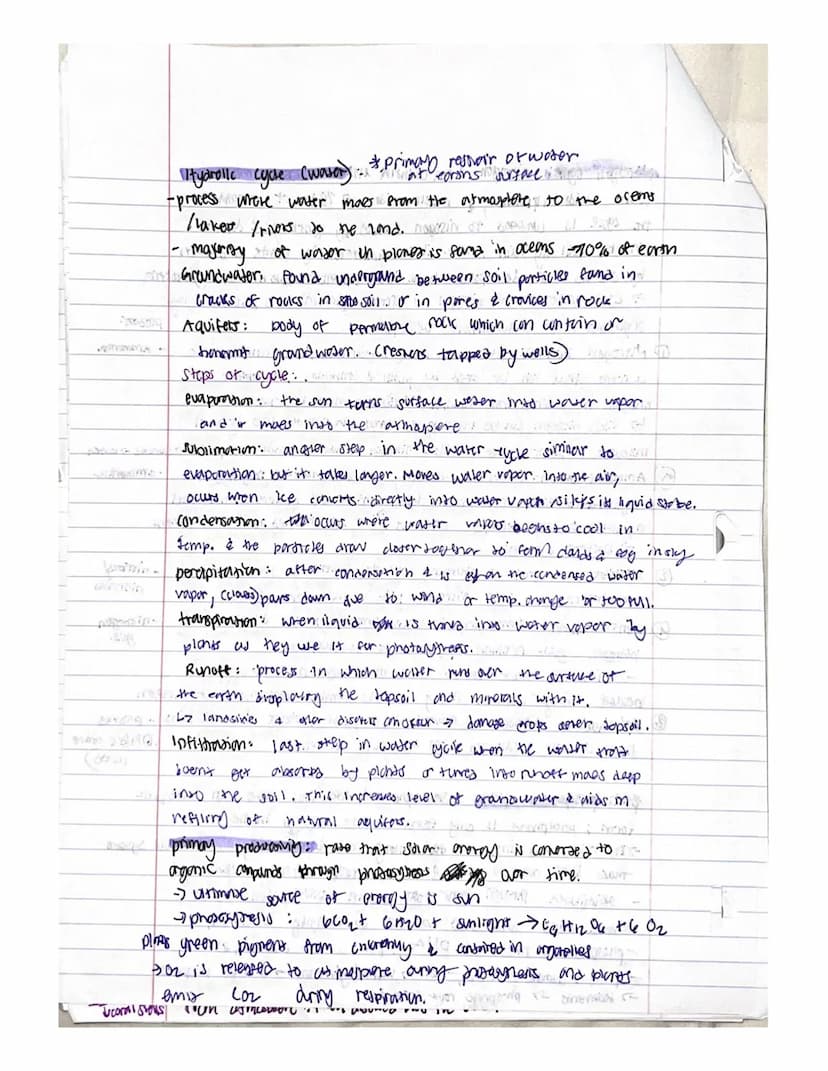 Hydrolic cycle (water): *primary resivoir of water
at earths surface
-process where water moves from the atmosphere to the oceans
/lakes /rivers to the land.
- majority of water in planet is found in oceans →70% of earth
Groundwater: found underground between soil particles found in
cracks of rocks in soil. or in pores & crevices in rock
Aquifers: body of permeable rock which can contain or
transmit groundwater. (resivors tapped by wells)
Steps of cycle:
evaporation: the sun turns surface water into water vapor
and it moves into the atmosphere
sublimation: another step in the water cycle similar to
evaporation: but it takes longer. Moves water vapor into the air,
occurs when ice converts directly into water vapor skips its liquid state.
Condensation: occurs where water vapor begins to cool in
temp. & the particles draw closer together to form clouds & fog in sky
percipitation: after condensation & is when the condensed water
vapor, (clouds) pours down due to wind or temp. change or too full.
transpiration: when liquid is turned into water vapor by
plants as they use it for photosynthesis.
Runoff: process in which water runs over the surface of
the earth displacing the topsoil and minerals with it.
↳ landslides & other disasters can occur → damage crops topsoil.
Infiltration: last step in water cycle when the water that
doesnt get absorbed by plants or turned into runoff moves deep
into the soil. This increases level of groundwater & aids in
refilling of natural aquifers.
primary productivity: rate that solar energy is converted to
organic compounds through photosynthesis over time.
→ ultimate source of energy is sun
→ photosynthesis: 6CO2 + 6H2O + sunlight → C6H12O6 + 6O2
green pigment from & contained in organelles
→ O2 is released to atmosphere during photosynthesis and plants
emit CO2 during respiration.